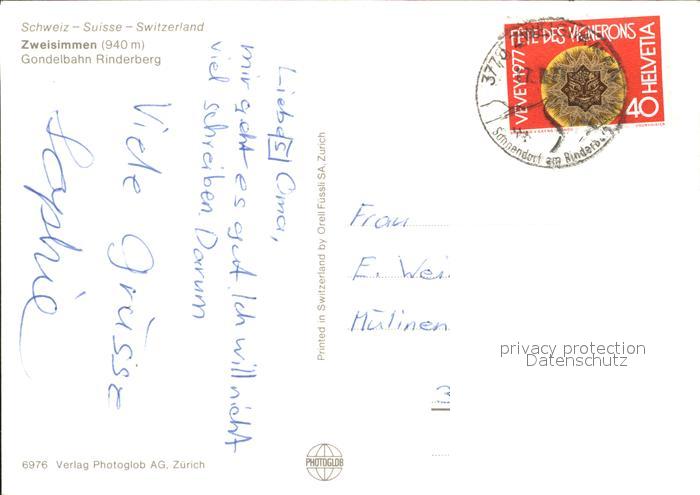 Schweiz – Suisse – Switzerland
Zweisimmen (940 m)
Gondelbahn Rinderberg
Liebe[s] Oma,
mir geht es gut. Ich will nicht
viel schreiben. Darum
Viele Grüsse
Sophie
6976 Verlag Photoglob AG, Zürich
PHOTOGLOB
Printed in Switzerland by Orell Füssli SA, Zürich
3770
Sonnendorf am Rinderberg
VEVEY 1977 FÊTE DES VIGNERONS
40 HELVETIA
Frau
E. Wei
Mülinen
privacy protection
Datenschutz